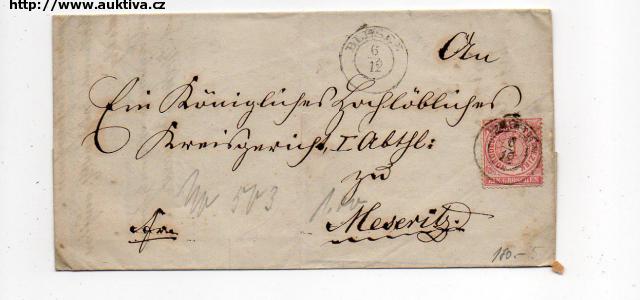 http://www.auktiva.cz
6
12
An
Ein Königliches Hochlöbliches
Kreisgericht, I Abthl:
zu
Meseritz.
6
12
EIN GROSCHEN
503
180.-